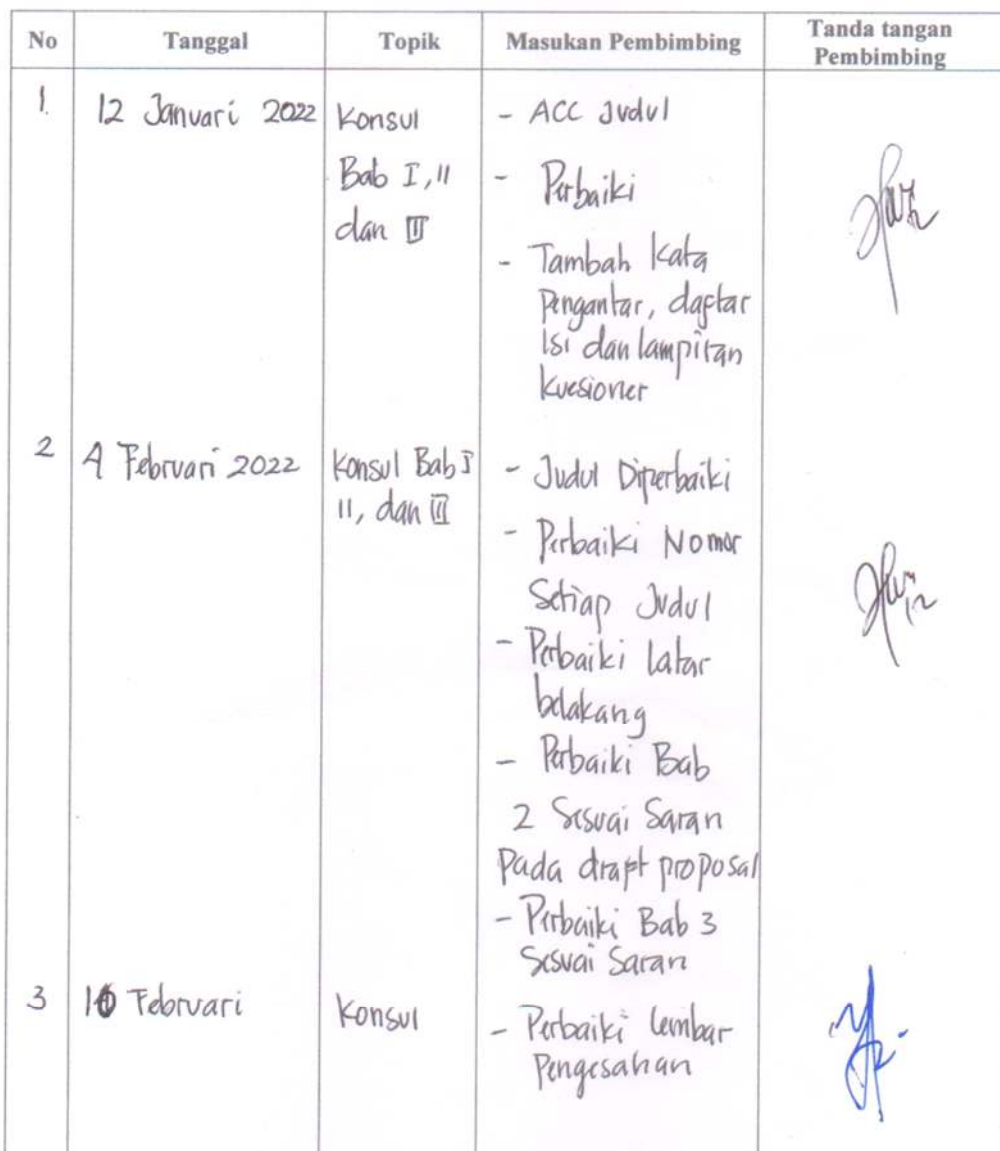 No Tanggal Topik Masukan Pembimbing Tanda tangan
Pembimbing
1. 12 Januari 2022 Konsul - ACC Judul
Bab I, II - Perbaiki
dan III
- Tambah Kata
Pengantar, daftar
Isi dan lampiran
Kuesioner
2 4 Februari 2022 Konsul Bab I - Judul Diperbaiki
II, dan III
- Perbaiki Nomor
Setiap Judul
- Perbaiki latar
belakang
- Perbaiki Bab
2 Sesuai Saran
Pada draft proposal
- Perbaiki Bab 3
Sesuai Saran
3 Februari Konsul - Perbaiki lembar
Pengesahan